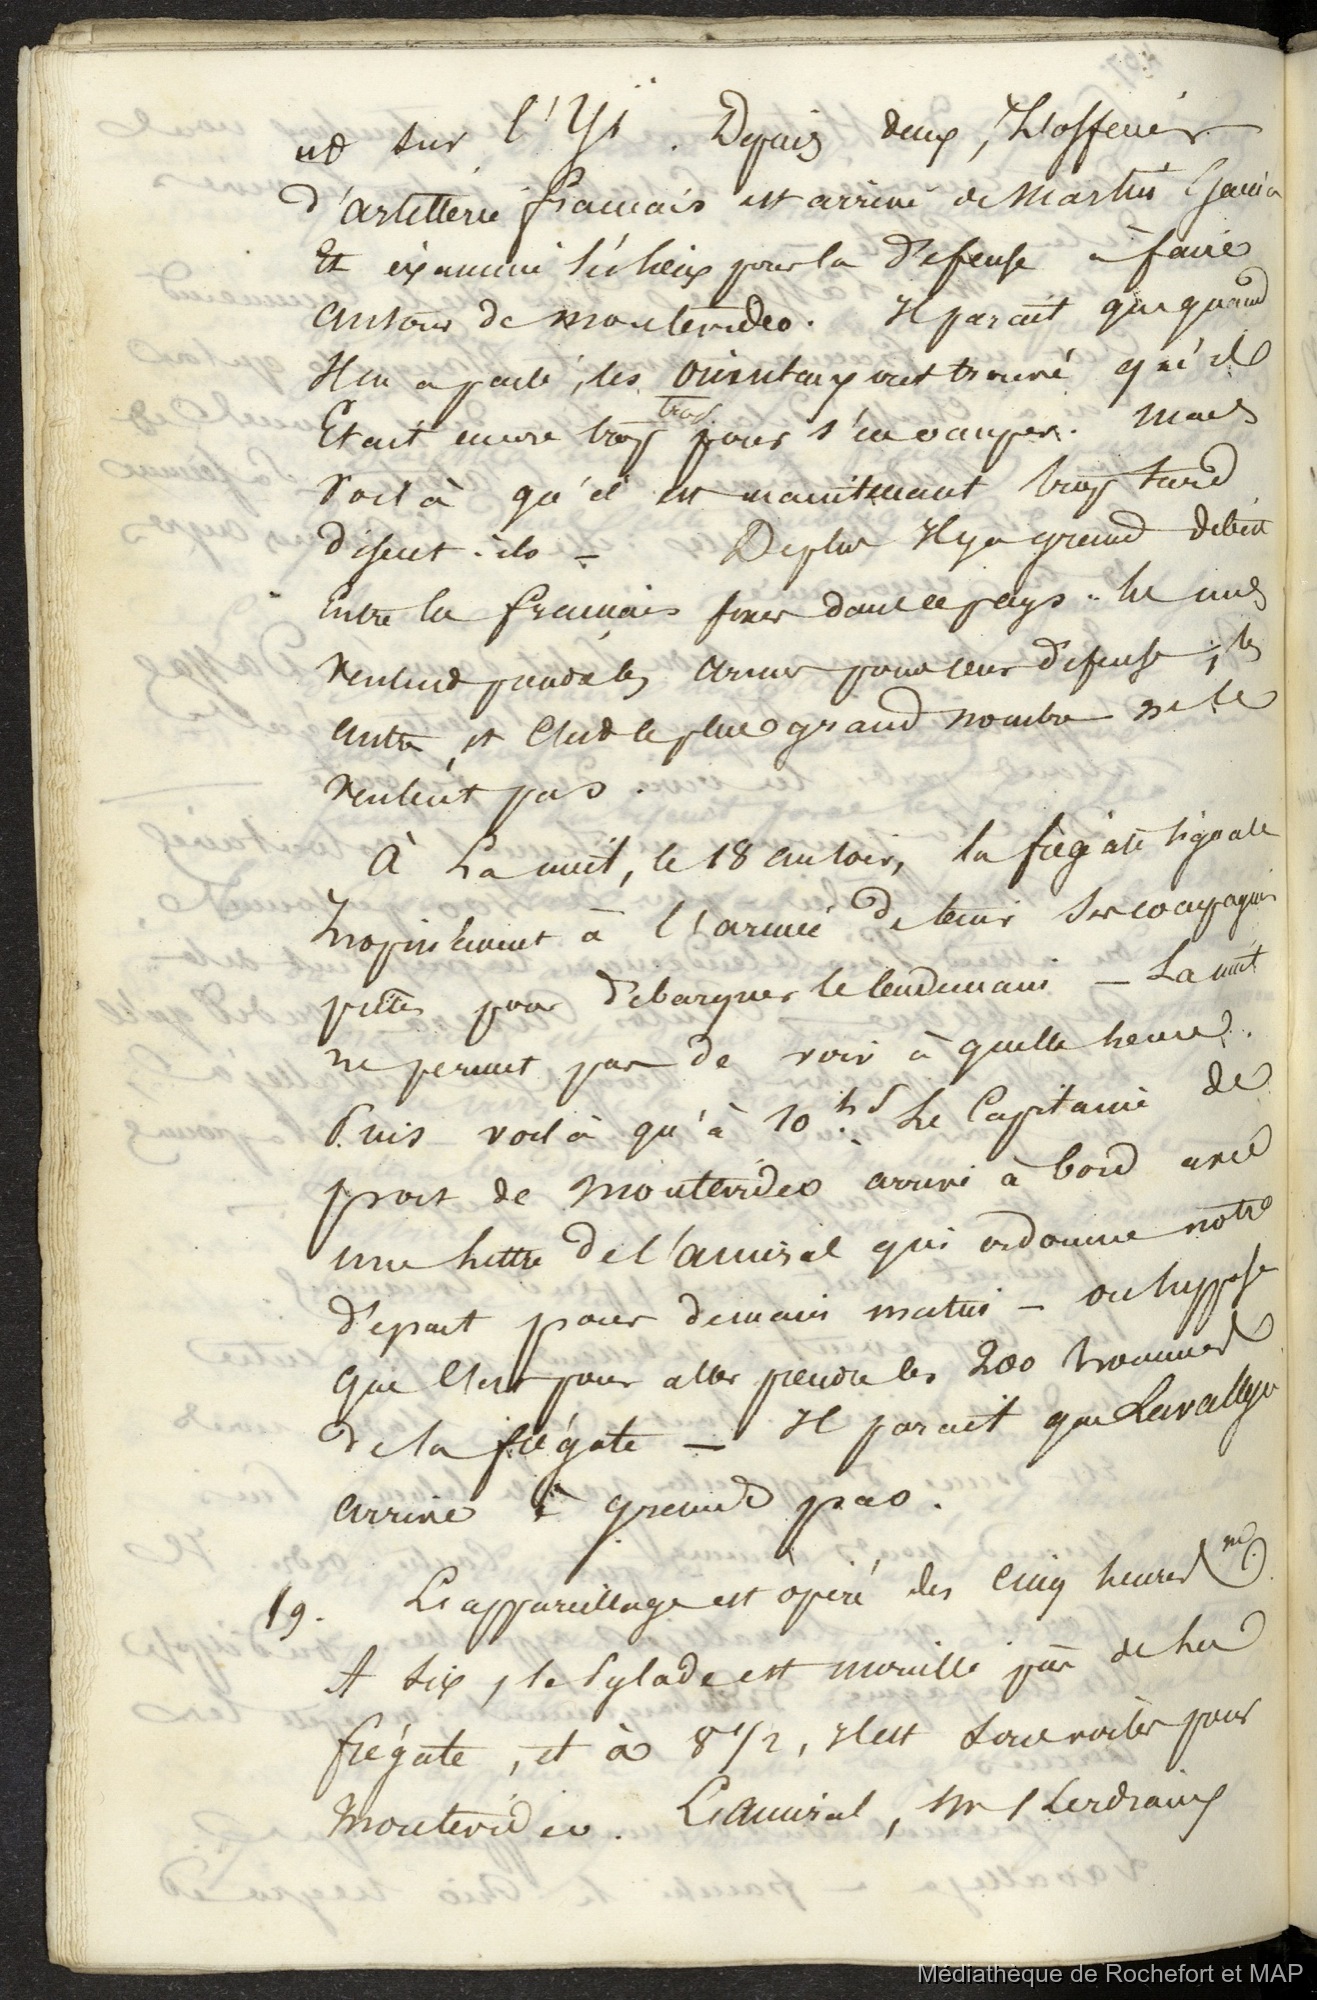 est sur l'Yi. Depuis deux j., L'officier
d'artillerie français est arrivé de Martin Garcia
Et examine les lieux pour la défense à faire
autour de montevideo. Il parait que quand
Il en a parlé, les orientaux ont trouvé qu'il
Etait encore trop pour s'en occuper. Mais
trop
Voilà qu'il est maintenant trop tard
disent-ils – De plus Il y a grand débat
Entre les français fixés dans ce pays. Les uns
veulent prendre les armes pour leur défense, les
autres, et C'est le plus grand nombre ne le
veulent pas.
À La nuit, le 18 au soir, la frégate signale
Inopinément à l'armée de tenir Ses compagnies
prêtes pour débarquer le lendemain – La nuit
ne permet pas de voir à quelle heure.
Puis voilà qu'à 10 hs. Le Capitaine de
port de Montevideo arrive à bord avec
une lettre de l'amiral qui ordonne notre
départ pour demain matin – on suppose
que C'est pour aller prendre les 200 hommes
de la frégate – Il parait que Lavalleja
arrive à grand pas.
19. L'appareillage est opéré dès Cinq heures m.
A six, le Pylade est mouillé près de la
frégate, et à 8 1/2, Il est sous voiles pour
Montevideo. L'amiral, Mr Lerdrain